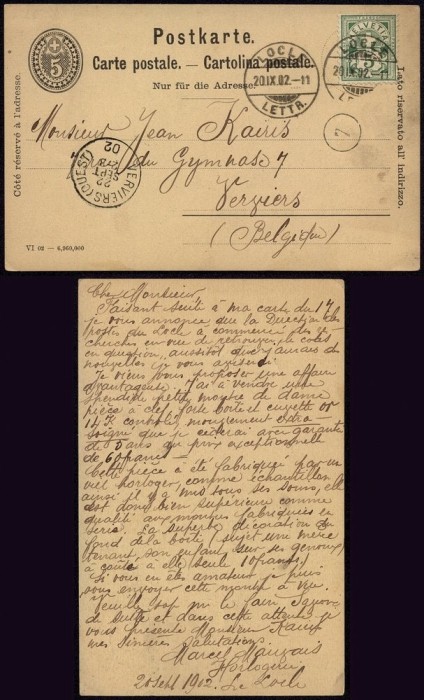 Postkarte.
Carte postale. — Cartolina postale.
Nur für die Adresse.
Côté réservé à l'adresse.
Lato riservato all' indirizzo.
5
HELVETIA
LOCLE
20.IX.02.-11
LETTR.
LOCLE
20.IX.02.-11
7
Monsieur Jean
du Gymnase 7
Verviers
(Belgique)
VERVIERS (OUEST)
22
SEPT
02
VI 02 — 4,260,000
Monsieur
Faisant suite à ma carte du 17
je vous annonce que la Direction des
postes du Locle a commencé des re-
cherches en vue de retrouver le colis
en question, aussitôt que j'aurais des
nouvelles je vous
Je viens vous proposer une affaire
avantageuse. J'ai à vendre une
splendide petite montre de dame
pièce à clef forte boîte et cuvette or
14 K contrôlé, mouvement extra-
soigné que je cèderai avec garantie
de 5 ans au prix exceptionnel
de 60 francs
Cette pièce a été fabriquée par un
vieil horloger, comme échantillon,
ainsi il y a sous ses soins, elle
est donc bien supérieure comme
qualité aux montres fabriquées en
série. La superbe décoration du
fond de la boîte (sujet une mère
tenant son enfant sur ses genoux)
a coûté à elle seule 10 francs.
Si vous en êtes amateur je puis
vous envoyer cette montre à vue.
Veuillez
de suite et dans cette attente je
vous présente Monsieur
mes sincères salutations.
Marcel
Horlogerie
20 Sept 1902. Le Locle